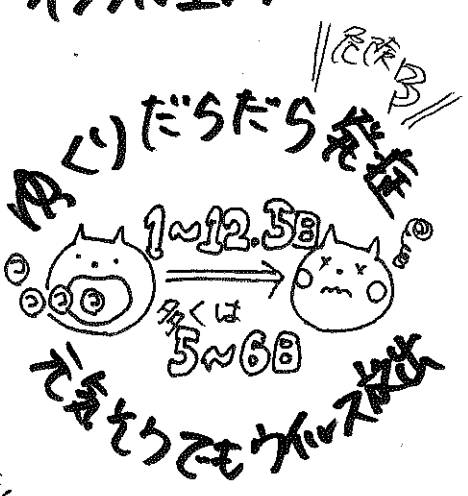 危険3
ゆっくりだらだら発症
1~12.5日
多くは
5~6日
元気そうでもウイルス放出